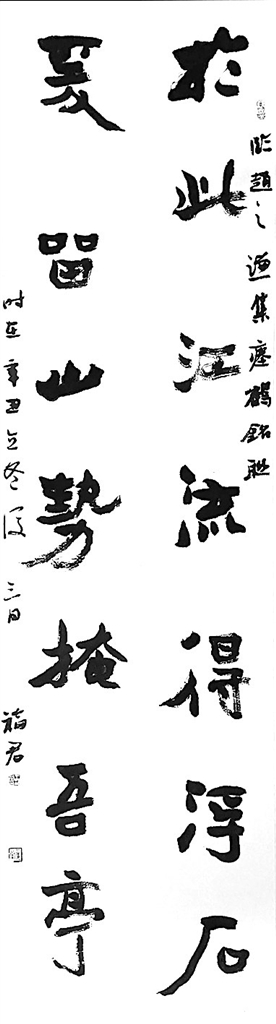 臨趙之謙集瘞鶴銘聯
於此江流得浮石
爰留山勢掩吾亭
时在辛丑立冬後三日 福君